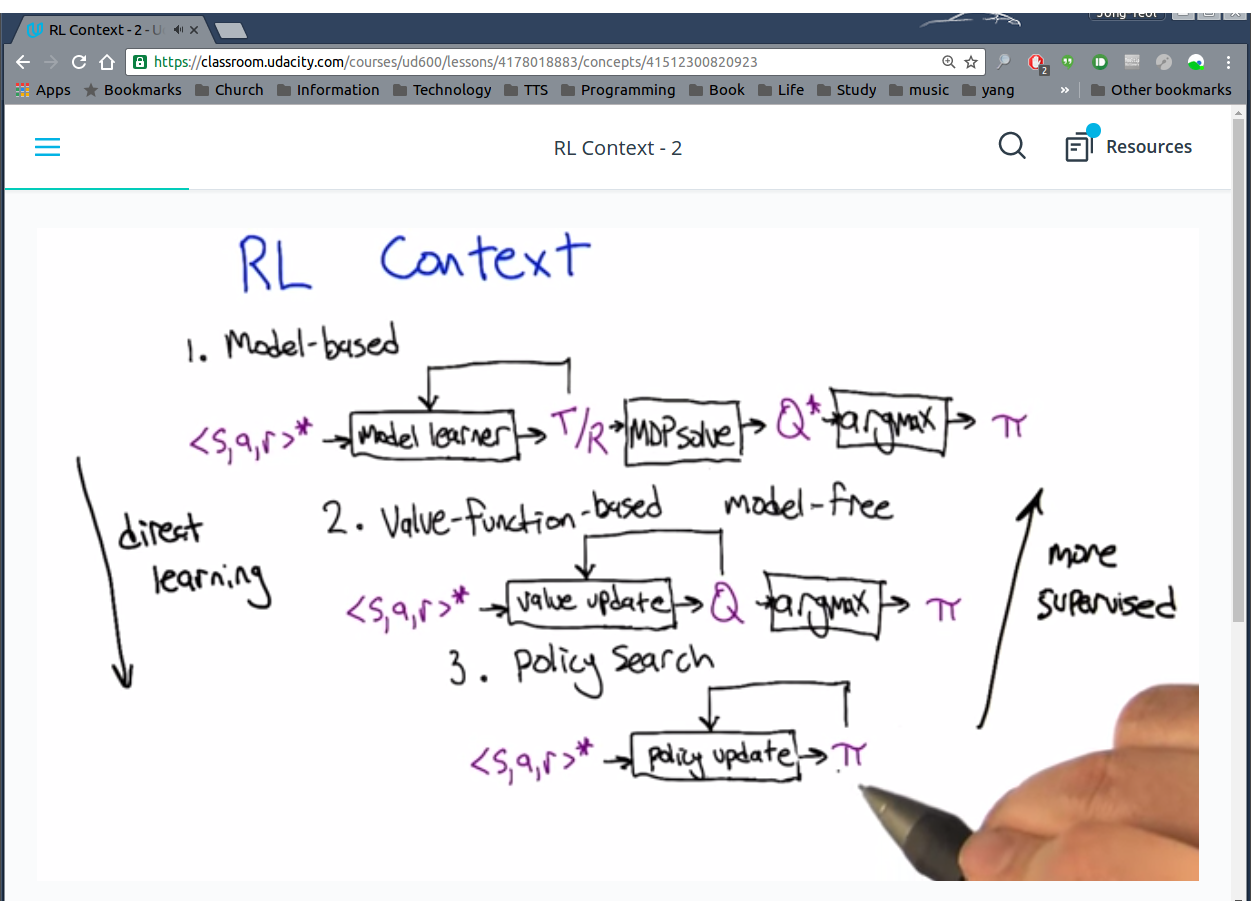 RL Context - 2 - U
Jong Yeol
https://classroom.udacity.com/courses/ud600/lessons/4178018883/concepts/41512300820923
2
Apps Bookmarks Church Information Technology TTS Programming Book Life Study music yang » Other bookmarks
RL Context - 2
Resources
RL Context
1. Model-based
<s,a,r>* → model learner → T/R → MDP solve → Q* → argmax → π
direct
learning
2. Value-function-based model-free
<s,a,r>* → value update → Q → argmax → π
more
supervised
3. policy search
<s,a,r>* → policy update → π